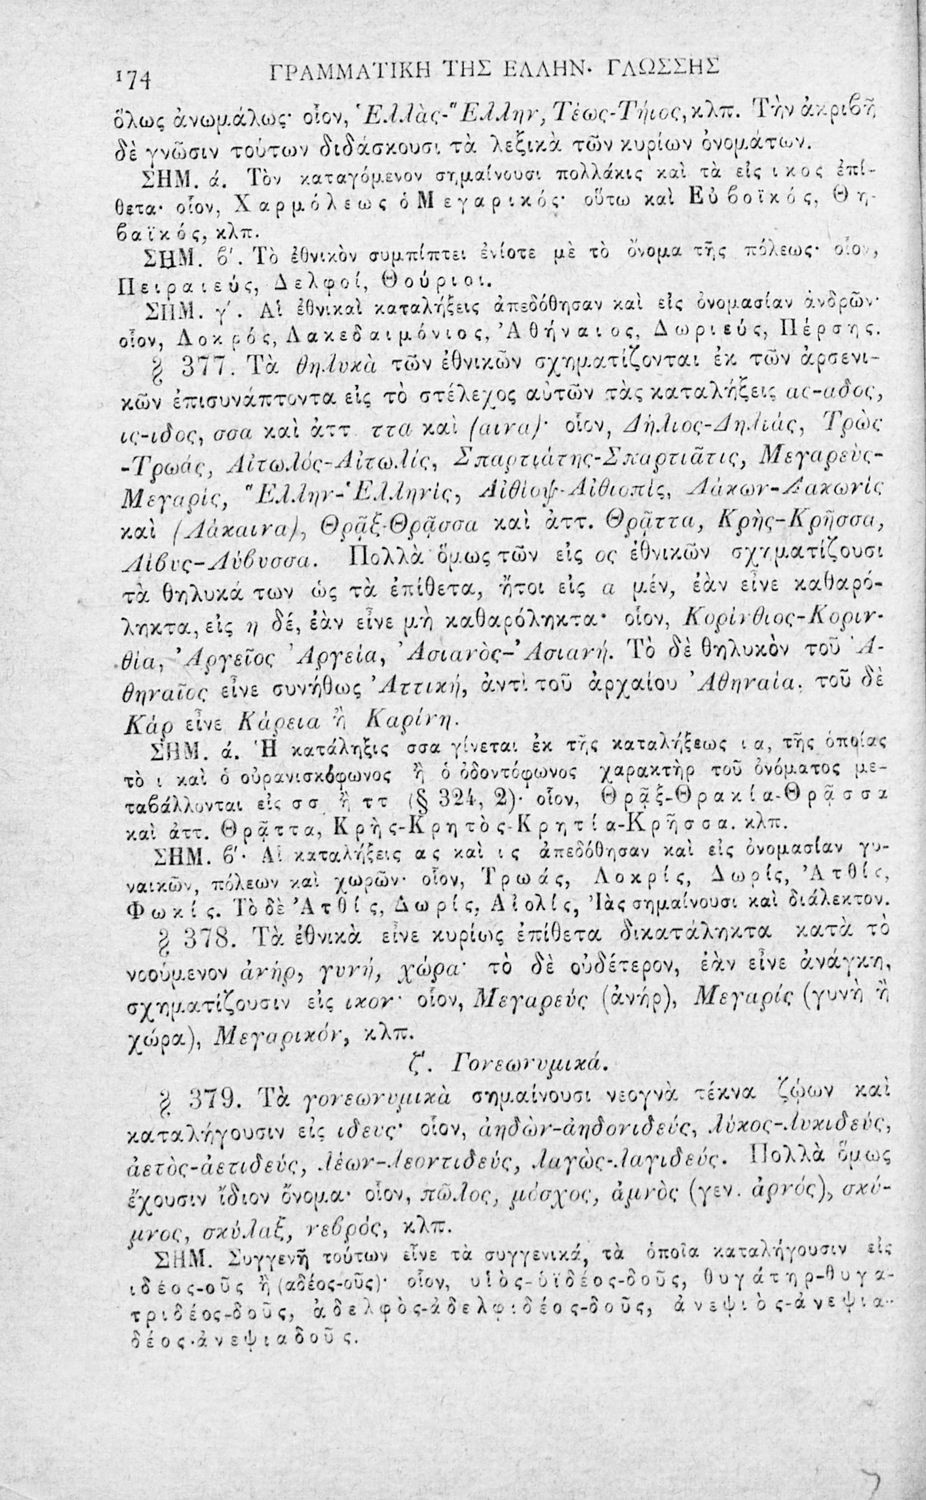 174 ΓΡΑΜΜΑΤΙΚΗ ΤΗΣ ΕΛΛΗΝ. ΓΛΩΣΣΗΣ
ὅλως ἀνωμάλως· οἷον, Ἑλλὰς-Ἕλλην, Τέως-Τήιος, κλπ. Τὴν ἀκριβῆ
δὲ γνῶσιν τούτων διδάσκουσι τὰ λεξικὰ τῶν κυρίων ὀνομάτων.
ΣΗΜ. ά. Τὸν καταγόμενον σημαίνουσι πολλάκις καὶ τὰ εἰς ικος ἐπί-
θετα· οἷον, Χαρμόλεως ὁ Μεγαρικός· οὕτω καὶ Εὐβοϊκός, Θη-
βαϊκός, κλπ.
ΣΗΜ. β´. Τὸ ἐθνικὸν συμπίπτει ἐνίοτε μὲ τὸ ὄνομα τῆς πόλεως· οἷον,
Πειραιεύς, Δελφοί, Θούριοι.
ΣΗΜ. γ´. Αἱ ἐθνικαὶ καταλήξεις ἀπεδόθησαν καὶ εἰς ὀνομασίαν ἀνδρῶν·
οἷον, Λοκρός, Λακεδαιμόνιος, Ἀθήναιος, Δωριεύς, Πέρσης.
§ 377. Τὰ θηλυκὰ τῶν ἐθνικῶν σχηματίζονται ἐκ τῶν ἀρσενι-
κῶν ἐπισυνάπτοντα εἰς τὸ στέλεχος αὐτῶν τὰς καταλήξεις ας-αδος,
ις-ιδος, σσα καὶ ἀττ ττα καὶ (αινα)· οἷον, Δήλιος-Δηλιάς, Τρὼς
-Τρωάς, Αἰτωλός-Αἰτωλίς, Σπαρτιάτης-Σπαρτιᾶτις, Μεγαρεὺς-
Μεγαρίς, Ἕλλην-Ἑλληνίς, Αἰθίοψ-Αἰθιοπίς, Λάκων-Λακωνίς
καὶ (Λάκαινα), Θρᾷξ-Θρᾷσσα καὶ ἀττ. Θρᾷττα, Κρὴς-Κρῆσσα,
Λίβυς-Λύβυσσα. Πολλὰ ὅμως τῶν εἰς ος ἐθνικῶν σχηματίζουσι
τὰ θηλυκά των ὡς τὰ ἐπίθετα, ἤτοι εἰς α μέν, ἐὰν εἶνε καθαρό-
ληκτα, εἰς η δέ, ἐὰν εἶνε μὴ καθαρόληκτα· οἷον, Κορίνθιος-Κοριν-
θία, Ἀργεῖος Ἀργεία, Ἀσιανὸς-Ἀσιανή. Τὸ δὲ θηλυκὸν τοῦ Ἀ-
θηναῖος εἶνε συνήθως Ἀττική, ἀντὶ τοῦ ἀρχαίου Ἀθηναία, τοῦ δὲ
Κάρ εἶνε Κάρεια ἢ Καρίνη.
ΣΗΜ. ά. Ἡ κατάληξις σσα γίνεται ἐκ τῆς καταλήξεως ια, τῆς ὁποίας
τὸ ι καὶ ὁ οὐρανισκόφωνος ἢ ὁ ὀδοντόφωνος χαρακτὴρ τοῦ ὀνόματος με-
ταβάλλονται εἰς σσ ἢ ττ (§ 324, 2)· οἷον, Θρᾷξ-Θρακία-Θρᾷσσα
καὶ ἀττ. Θρᾷττα, Κρὴς-Κρητὸς-Κρητία-Κρῆσσα. κλπ.
ΣΗΜ. β´· Αἱ καταλήξεις ας καὶ ις ἀπεδόθησαν καὶ εἰς ὀνομασίαν γυ-
ναικῶν, πόλεων καὶ χωρῶν· οἷον, Τρωάς, Λοκρίς, Δωρίς, Ἀτθίς,
Φωκίς. Τὸ δὲ Ἀτθίς, Δωρίς, Αἰολίς, Ἰὰς σημαίνουσι καὶ διάλεκτον.
§ 378. Τὰ ἐθνικὰ εἶνε κυρίως ἐπίθετα δικατάληκτα κατὰ τὸ
νοούμενον ἀνήρ, γυνή, χώρα· τὸ δὲ οὐδέτερον, ἐὰν εἶνε ἀνάγκη,
σχηματίζουσιν εἰς ικον· οἷον, Μεγαρεύς (ἀνήρ), Μεγαρίς (γυνὴ ἢ
χώρα), Μεγαρικόν, κλπ.
ζ´. Γονεωνυμικά.
§ 379. Τὰ γονεωνυμικὰ σημαίνουσι νεογνὰ τέκνα ζῴων καὶ
καταλήγουσιν εἰς ιδευς· οἷον, ἀηδὼν-ἀηδονιδεύς, λύκος-λυκιδεύς,
ἀετὸς-ἀετιδεύς, λέων-λεοντιδεύς, λαγὼς-λαγιδεύς. Πολλὰ ὅμως
ἔχουσιν ἴδιον ὄνομα· οἷον, πῶλος, μόσχος, ἀμνὸς (γεν. ἀρνός), σκύ-
μνος, σκύλαξ, νεβρός, κλπ.
ΣΗΜ. Συγγενῆ τούτων εἶνε τὰ συγγενικά, τὰ ὁποῖα καταλήγουσιν εἰς
ιδέος-οῦς ἢ (αδέος-οῦς)· οἷον, υἱὸς-ὑϊδέος-δοῦς, θυγάτηρ-θυγα-
τριδέος-δοῦς, ἀδελφὸς-ἀδελφιδέος-δοῦς, ἀνεψιὸς-ἀνεψια-
δέος-ἀνεψιαδοῦς.